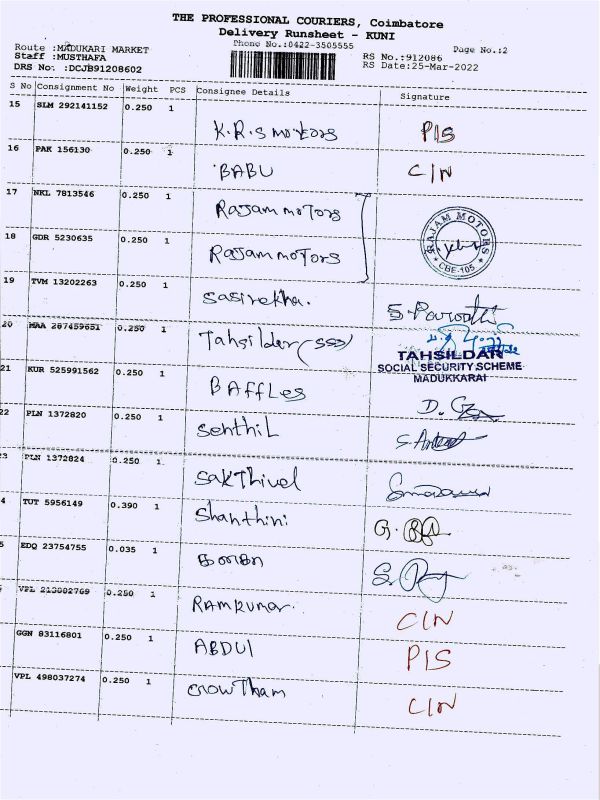 THE PROFESSIONAL COURIERS, Coimbatore
Delivery Runsheet - KUNI
Phone No.:0422-3505555
Page No.:2
Route :MADUKARI MARKET
Staff :MUSTHAFA
DRS No. :DCJB91208602
RS No.:912086
RS Date:25-Mar-2022
S No Consignment No Weight PCS Consignee Details Signature
15 SLM 292141152 0.250 1
K.R.S MOTORS PIS
16 PAK 156130 0.250 1
BABU CIN
17 NKL 7813546 0.250 1
Rajam motors
RAJAM MOTORS
CBE-105
18 GDR 5230635 0.250 1
Rajam moTors
19 TVM 13202263 0.250 1
Sasirekha. S. Parvathi
20 MAA 287459651 0.250 1
Tahsilder (SSS)
TAHSILDAR
SOCIAL SECURITY SCHEME
MADUKKARAI
21 KUR 525991562 0.250 1
BAffles D.
22 PLN 1372820 0.250 1
Senthil
23 PLN 1372824 0.250 1
Sakthivel
4 TUT 5956149 0.390 1
Shanthini G.
5 EDQ 23754755 0.035 1
கனகா S.
VPL 213002769 0.250 1
RAMKUMAR. CIN
GGN 83116801 0.250 1
ABDUl PIS
VPL 498037274 0.250 1
GowTham CIN